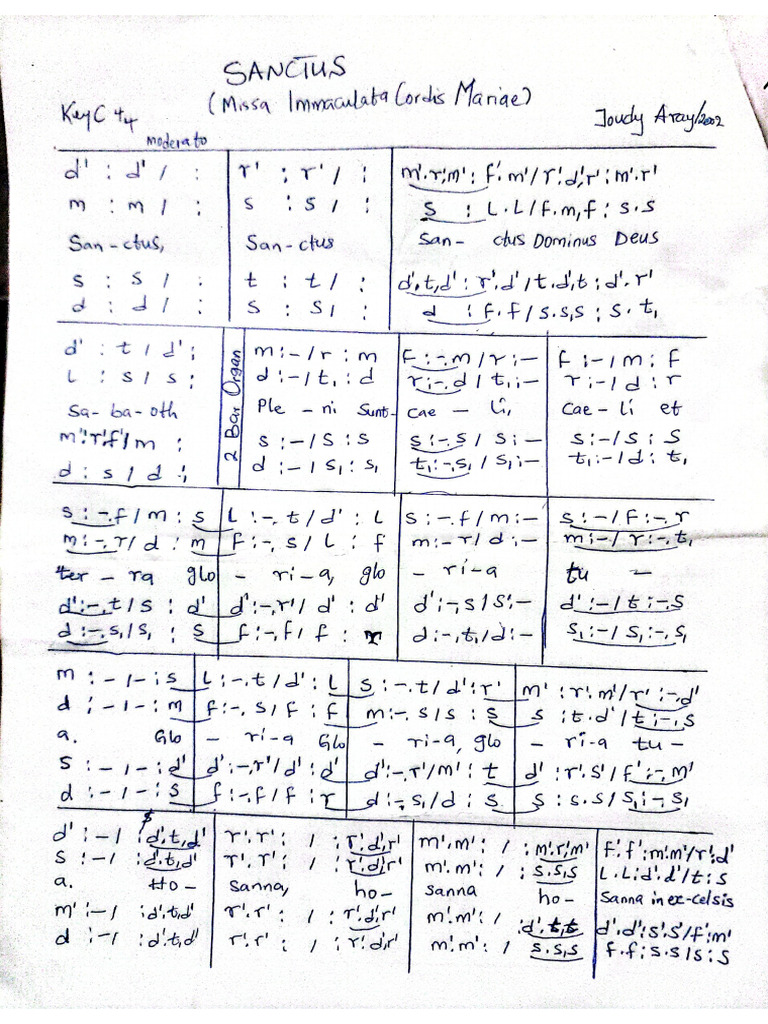 SANCTUS
(Missa Immaculata Cordis Mariae)
Key C 4/4
moderato
Joudy Aray/2002
d' : d' / : | r' : r' / : | m'.r',m' : f'.m' / r'.d',r' : m'.r'
m : m / : | s : s / : | s : l.l / f.m,f : s.s
San-ctus, San-ctus San- ctus Dominus Deus
s : s / : | t : t / : | d'.t,d' : r'.d' / t.d',t : d'.r'
d : d / : | s : s / : | d : f.f / s.s,s : s.t,
d' : t / d' : | 2 Bar Organ | m : - / r : m | f : -.m / r : - | f : - / m : f
l : s / s : | d : - / t, : d | r : -.d / t, : - | r : - / d : r
Sa-ba-oth Ple - ni Sunt- cae - li, cae-li et
m'.r'.f' / m : | s : - / s : s | s : -.s / s : - | s : - / s : s
d : s / d : | d : - / s, : s, | t, : -.s, / s, : - | t, : - / d : t,
s : -.f / m : s | l : -.t / d' : l | s : -.f / m : - | s : - / f : -.r
m : -.r / d : m | f : -.s / l : f | m : -.r / d : - | m : - / r : -.t,
ter - ra glo - ri-a, glo - ri-a tu -
d' : -.t / s : d' | d' : -.r' / d' : d' | d' : -.s / s : - | d' : - / t : -.s
d : -.s, / s, : s | f : -.f / f : r | d : -.t, / d : - | s, : - / s, : -.s,
m : - / - : s | l : -.t / d' : l | s : -.t / d' : r' | m' : r'.m' / r' : -.d'
d : - / - : m | f : -.s / f : f | m : -.s / s : s | s : t.d' / t : -.s
a. Glo - ri-a Glo - ri-a, glo - ri-a tu -
s : - / - : d' | d' : -.r' / d' : d' | d' : -.r' / m' : t | d' : r'.s' / f' : -.m'
d : - / - : s | f : -.f / f : r | d : -.s / d : s | s : s.s / s, : -.s,
d' : - / : d'.t,d' | r'.r' : / : r'.d',r' | m'.m' : / : m'.r',m' | f'.f' : m'.m' / r' : d'
s : - / : d'.t,d' | r'.r' : / : r'.d',r' | m'.m' : / : s.s,s | l.l : d'.d' / t : s
a. Ho- sanna, ho- sanna ho- Sanna in ex-celsis
m' : - / : d'.t,d' | r'.r' : / : r'.d',r' | m'.m' : / : d'.t,t | d'.d' : s'.s' / f' : m'
d : - / : d'.t,d' | r'.r' : / : r'.d',r' | m'.m' : / s.s,s | f.f : s.s / s : s